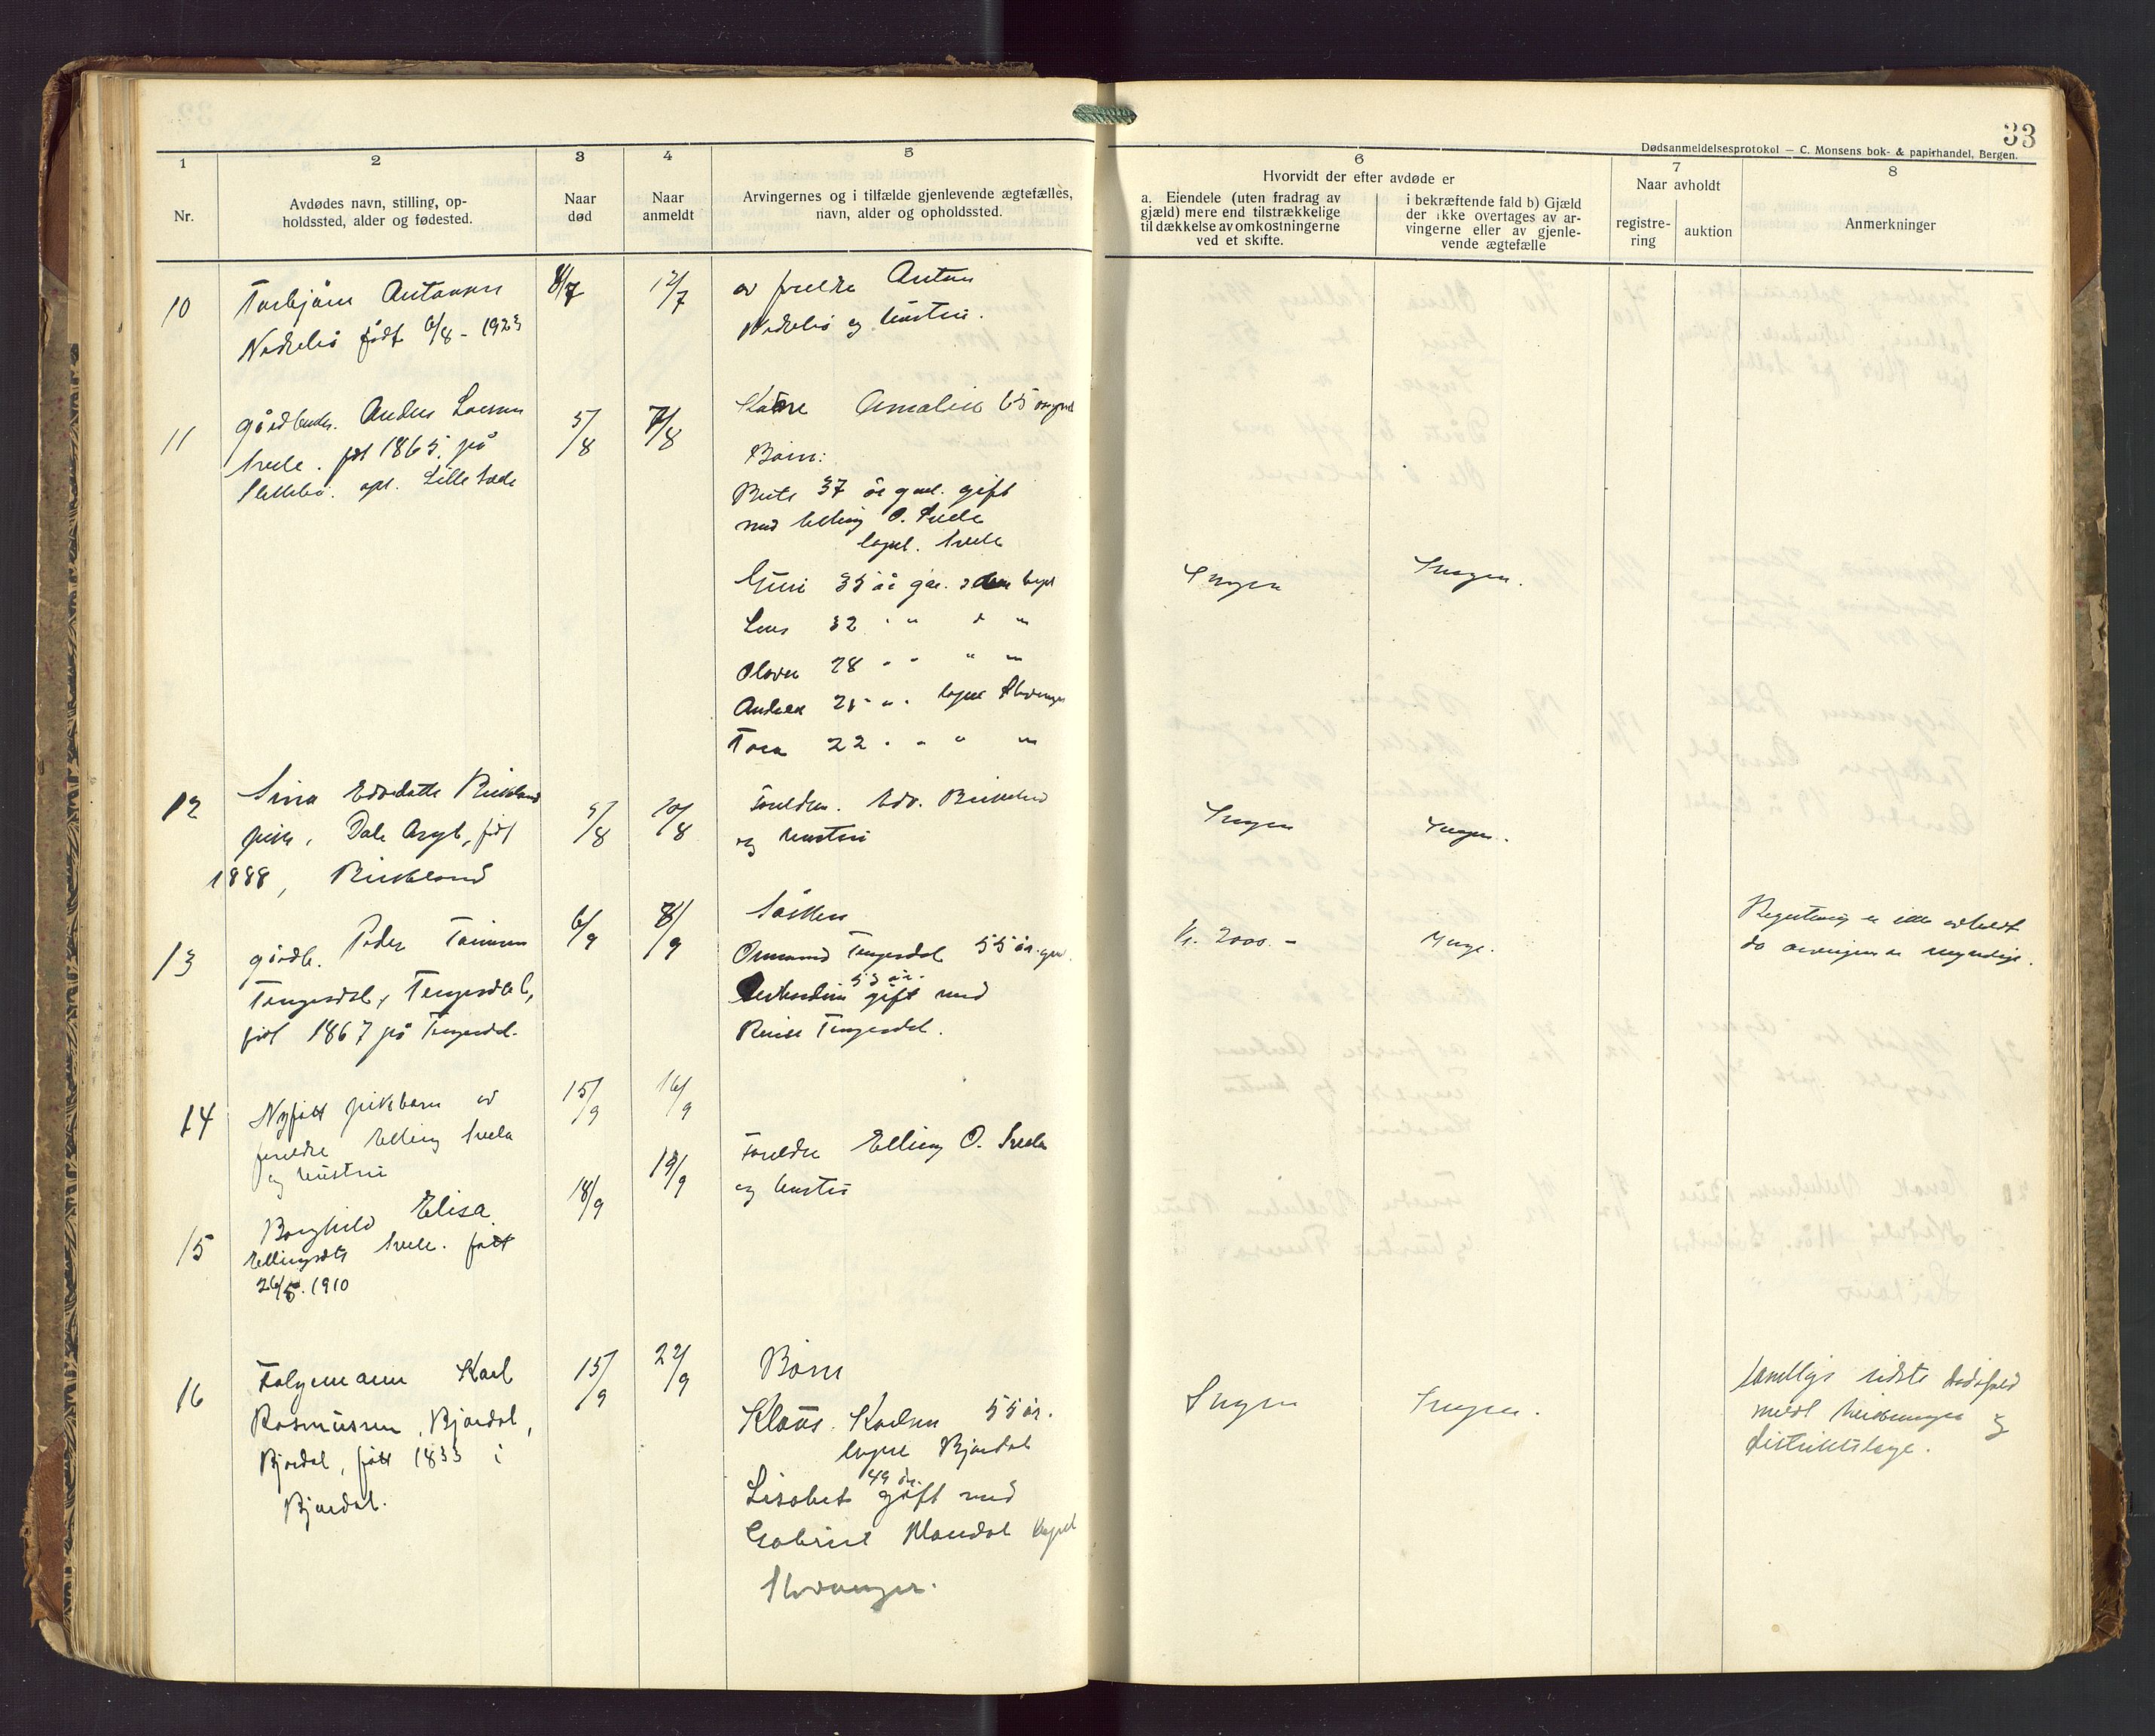 33
Dødsanmeldelsesprotokol — C. Monsens bok- & papirhandel, Bergen.
1
2
3
4
5
6
7
8
Nr.
Avdødes navn, stilling, op-
holdssted, alder og fødested.
Naar
død
Naar
anmeldt
Arvingernes og i tilfælde gjenlevende ægtefælles,
navn, alder og opholdssted.
Hvorvidt der efter avdøde er
a. Eiendele (uten fradrag av
gjæld) mere end tilstrækkelige
til dækkelse av omkostningerne
ved et skifte.
i bekræftende fald b) Gjæld
der ikke overtages av ar-
vingerne eller av gjenle-
vende ægtefælle
Naar avholdt
registre-
ring
auktion
Anmerkninger
10
Torbjørn Antonsen
født 6/8 - 1923
8/7
12/7
av foreldre Anton
og hustru.
11
gårdbruk. Anders Larsen
Svele. født 1865. på
5/8
7/8
Kone Amalie 65 år gml
Børn:
37 år gml. gift
med Elling O. Svele
bopel. Svele
Guri 35 år
Lars 32 " "
28 " " " "
Andreas 25 " " bopel Stavanger
Tora 22 " " " "
Ingen
Ingen.
12
Sina
pike, Dale Asyl, født
1888, Birkeland
5/8
10/8
Foreldre. Edv. Birkeland
og hustru
Ingen
Ingen.
13
gårdb. Peder Tønnesen
Tengesdal, Tengesdal,
født 1867 på Tengesdal.
6/9
8/9
Søsken
Osmund Tengesdal 55 år gml.
53 år.
gift med
Tengesdal.
Kr. 2000.-
Inge.
Registrering er ikke avholdt
da arvingene er myndige.
14
Nyfødt pikebarn av
foreldre Elling Svela
og hustru
15/9
16/9
15
Borghild Elisa
Ellingsdtr Svele. født
26/5. 1910
18/9
19/9
Foreldre Elling O. Svela
og hustru
16
Følgemann Karl
Rasmussen, Bjordal,
Bjordal, født 1833 i
Bjordal.
15/9
22/9
Børn
Klaus Karlsen 55 år.
bopel Bjordal
49 år.
Lisabet gift med
Gabriel bopel
Stavanger.
Ingen
Ingen.
samtlige sidste dødsfald
meldt og